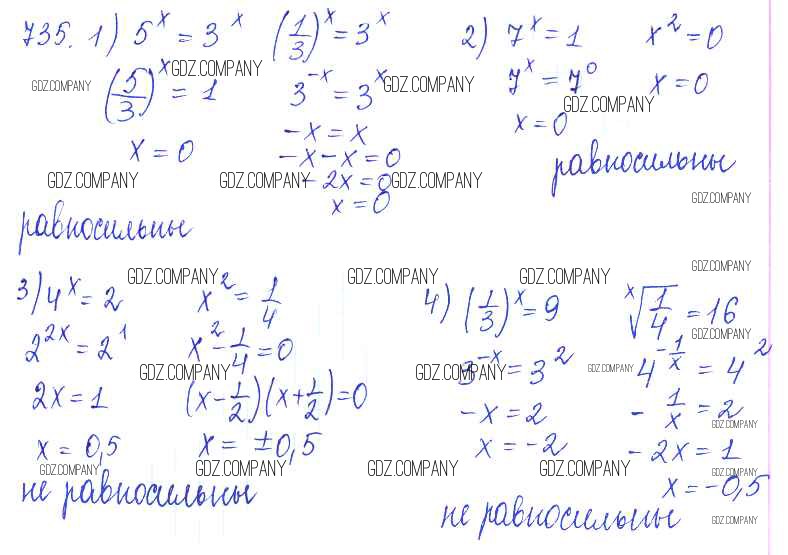 735. 1) 5^x = 3^x (1/3)^x = 3^x
(5/3)^x = 1 3^-x = 3^x
x = 0 -x = x
-x - x = 0
- 2x = 0
x = 0
равносильны
2) 7^x = 1 x^2 = 0
7^x = 7^0 x = 0
x = 0
равносильны
3) 4^x = 2 x^2 = 1/4
2^2x = 2^1 x^2 - 1/4 = 0
2x = 1 (x - 1/2)(x + 1/2) = 0
x = 0,5 x = ±0,5
не равносильны
4) (1/3)^x = 9 ˣ√(1/4) = 16
3^-x = 3^2 4^(-1/x) = 4^2
-x = 2 - 1/x = 2
x = -2 - 2x = 1
x = -0,5
не равносильны
GDZ.COMPANY GDZ.COMPANY GDZ.COMPANY
GDZ.COMPANY
GDZ.COMPANY GDZ.COMPANY GDZ.COMPANY
GDZ.COMPANY
GDZ.COMPANY
GDZ.COMPANY GDZ.COMPANY GDZ.COMPANY
GDZ.COMPANY
GDZ.COMPANY GDZ.COMPANY GDZ.COMPANY
GDZ.COMPANY
GDZ.COMPANY GDZ.COMPANY GDZ.COMPANY GDZ.COMPANY GDZ.COMPANY
GDZ.COMPANY